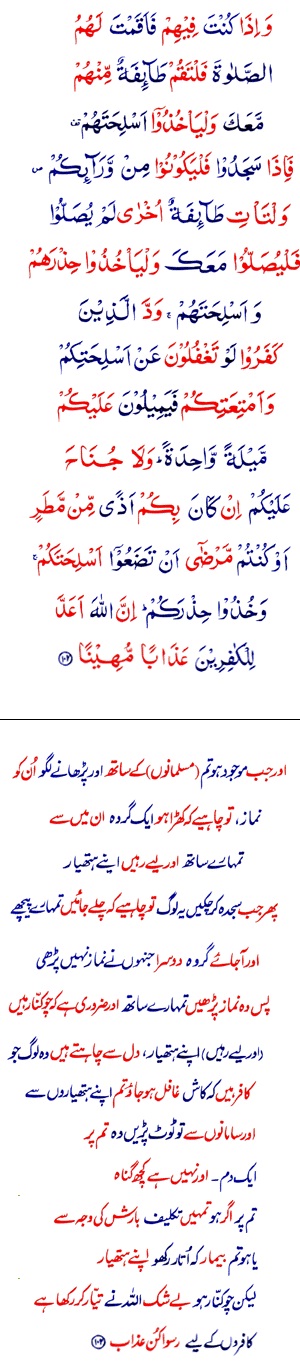 وَاِذَا كُنْتَ فِيْهِمْ فَاَقَمْتَ لَهُمُ
الصَّلٰوةَ فَلْتَقُمْ طَآئِفَةٌ مِّنْهُمْ
مَّعَكَ وَلْيَاْخُذُوْۤا اَسْلِحَتَهُمْ
فَاِذَا سَجَدُوْا فَلْيَكُوْنُوْا مِنْ وَّرَآئِكُمْ
وَلْتَاْتِ طَآئِفَةٌ اُخْرٰى لَمْ يُصَلُّوْا
فَلْيُصَلُّوْا مَعَكَ وَلْيَاْخُذُوْا حِذْرَهُمْ
وَ اَسْلِحَتَهُمْ ۚ وَدَّ الَّذِيْنَ
كَفَرُوْا لَوْ تَغْفُلُوْنَ عَنْ اَسْلِحَتِكُمْ
وَاَمْتِعَتِكُمْ فَيَمِيْلُوْنَ عَلَيْكُمْ
مَّيْلَةً وَّاحِدَةً ؕ وَلَا جُنَاحَ
عَلَيْكُمْ اِنْ كَانَ بِكُمْ اَذًى مِّنْ مَّطَرٍ
اَوْ كُنْتُمْ مَّرْضٰۤى اَنْ تَضَعُوْۤا اَسْلِحَتَكُمْ ۚ
وَخُذُوْا حِذْرَكُمْ ؕ اِنَّ اللّٰهَ اَعَدَّ
لِلْكٰفِرِيْنَ عَذَابًا مُّهِيْنًا ﴿۱۰۲﴾
اور جب موجود ہو تم (مسلمانوں) کے ساتھ اور پڑھانے لگو اُن کو
نماز، تو چاہیے کہ کھڑا ہو ایک گروہ ان میں سے
تمہارے ساتھ اور لیے رہیں اپنے ہتھیار
پھر جب سجدہ کر چکیں یہ لوگ تو چاہیے کہ چلے جائیں تمہارے پیچھے
اور آجائے گروہ دوسرا جنہوں نے نماز نہیں پڑھی
پس وہ نماز پڑھیں تمہارے ساتھ اور ضروری ہے کہ چوکنّا رہیں
(اور لیے رہیں) اپنے ہتھیار، دل سے چاہتے ہیں وہ لوگ جو
کافر ہیں کہ کاش غافل ہو جاؤ تم اپنے ہتھیاروں سے
اور سامانوں سے تو ٹوٹ پڑیں وہ تم پر
ایک دم۔ اور نہیں ہے کچھ گناہ
تم پر اگر ہو تمہیں تکلیف بارش کی وجہ سے
یا ہو تم بیمار کہ اُتار رکھو اپنے ہتھیار
لیکن چوکنّا رہو بے شک اللہ نے تیّار کر رکھا ہے
کافروں کے لیے رسوا کُن عذاب ﴿۱۰۲﴾